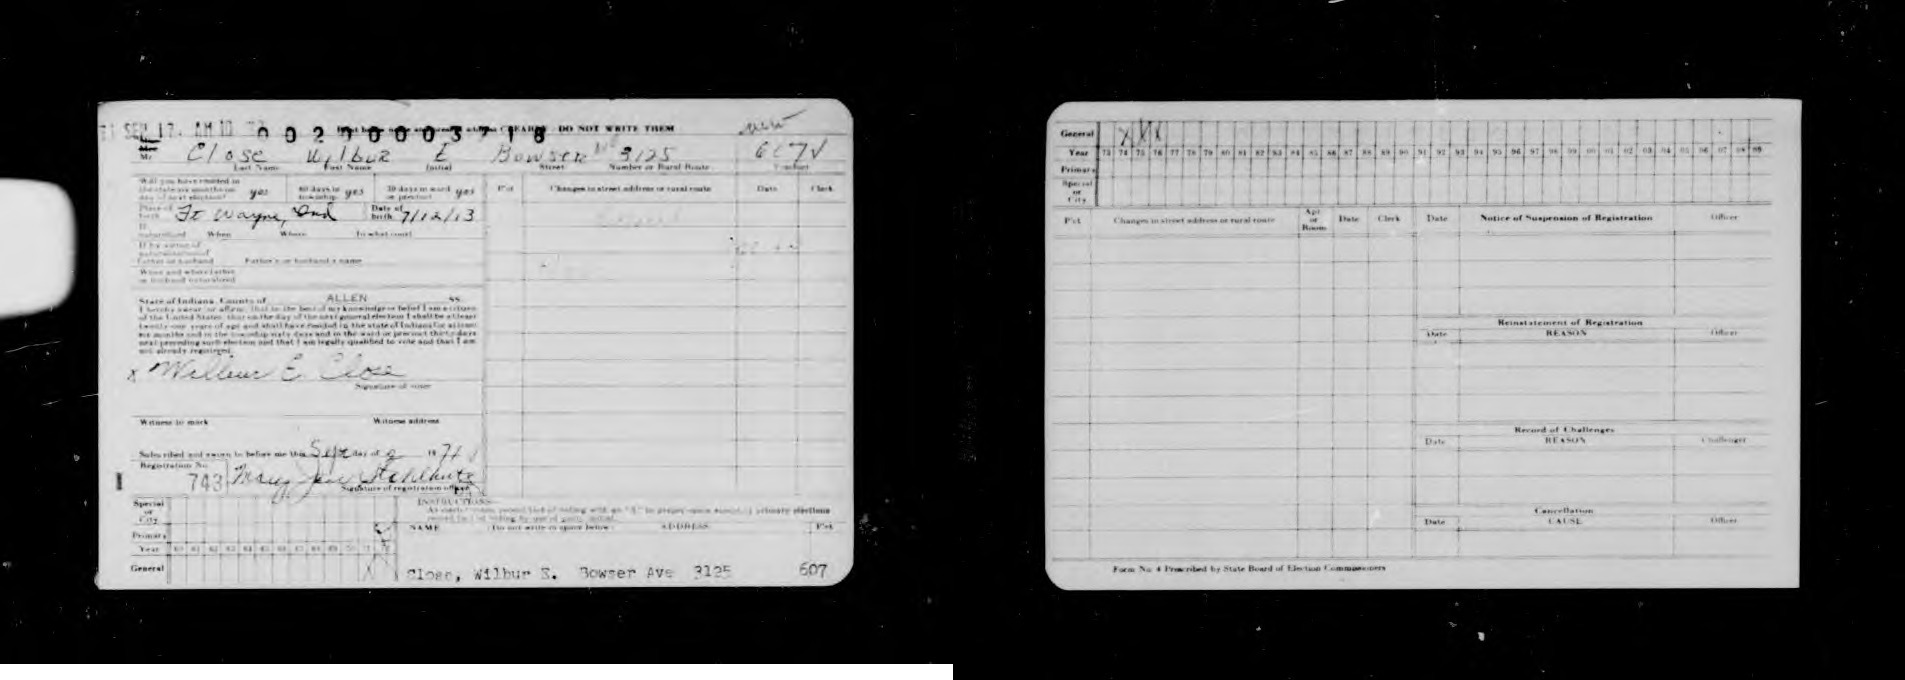 SEP 17. AM 10
00200003718
DO NOT WRITE THEM
new
Mr. Close Wilbur E Bowser 3125 607
Last Name First Name Initial Street Number or Rural Route Precinct
Will you have resided in the state six months on day of next election? yes 60 days in township yes 30 days in ward or precinct yes
P'ct Changes in street address or rural route Date Clerk
Place of birth Ft Wayne, Ind Date of birth 7/12/13
If naturalized When Where In what court
If by virtue of naturalization of
father or husband Father's or husband's name
When and where father
or husband naturalized
State of Indiana, County of ALLEN ss.
I hereby swear or affirm, that to the best of my knowledge or belief I am a citizen
of the United States, that on the day of the next general election I shall be at least
twenty-one years of age and shall have resided in the state of Indiana for at least
six months and in the township sixty days and in the ward or precinct thirty days
next preceding such election and that I am legally qualified to vote and that I am
not already registered.
x Wilbur E. Close
Signature of voter
Witness to mark Witness address
Subscribed and sworn to before me this Sept day of 19 71
Registration No.
743 Mary Jane
Signature of registration officer
Special or City
Primary
Year 60 61 62 63 64 65 66 67 68 69 70 71 72
General
INSTRUCTIONS
NAME (Do not write in space below) ADDRESS P'ct
Close, Wilbur E. Bowser Ave 3125 607
General X X X
Year 73 74 75 76 77 78 79 80 81 82 83 84 85 86 87 88 89 90 91 92 93 94 95 96 97 98 99 00 01 02 03 04 05 06 07 08 09
Primary
Special or City
P'ct Changes in street address or rural route Apt or Room Date Clerk Date Notice of Suspension of Registration Officer
Reinstatement of Registration
Date REASON Officer
Record of Challenges
Date REASON Challenger
Cancellation
Date CAUSE Officer
Form No. 4 Prescribed by State Board of Election Commissioners